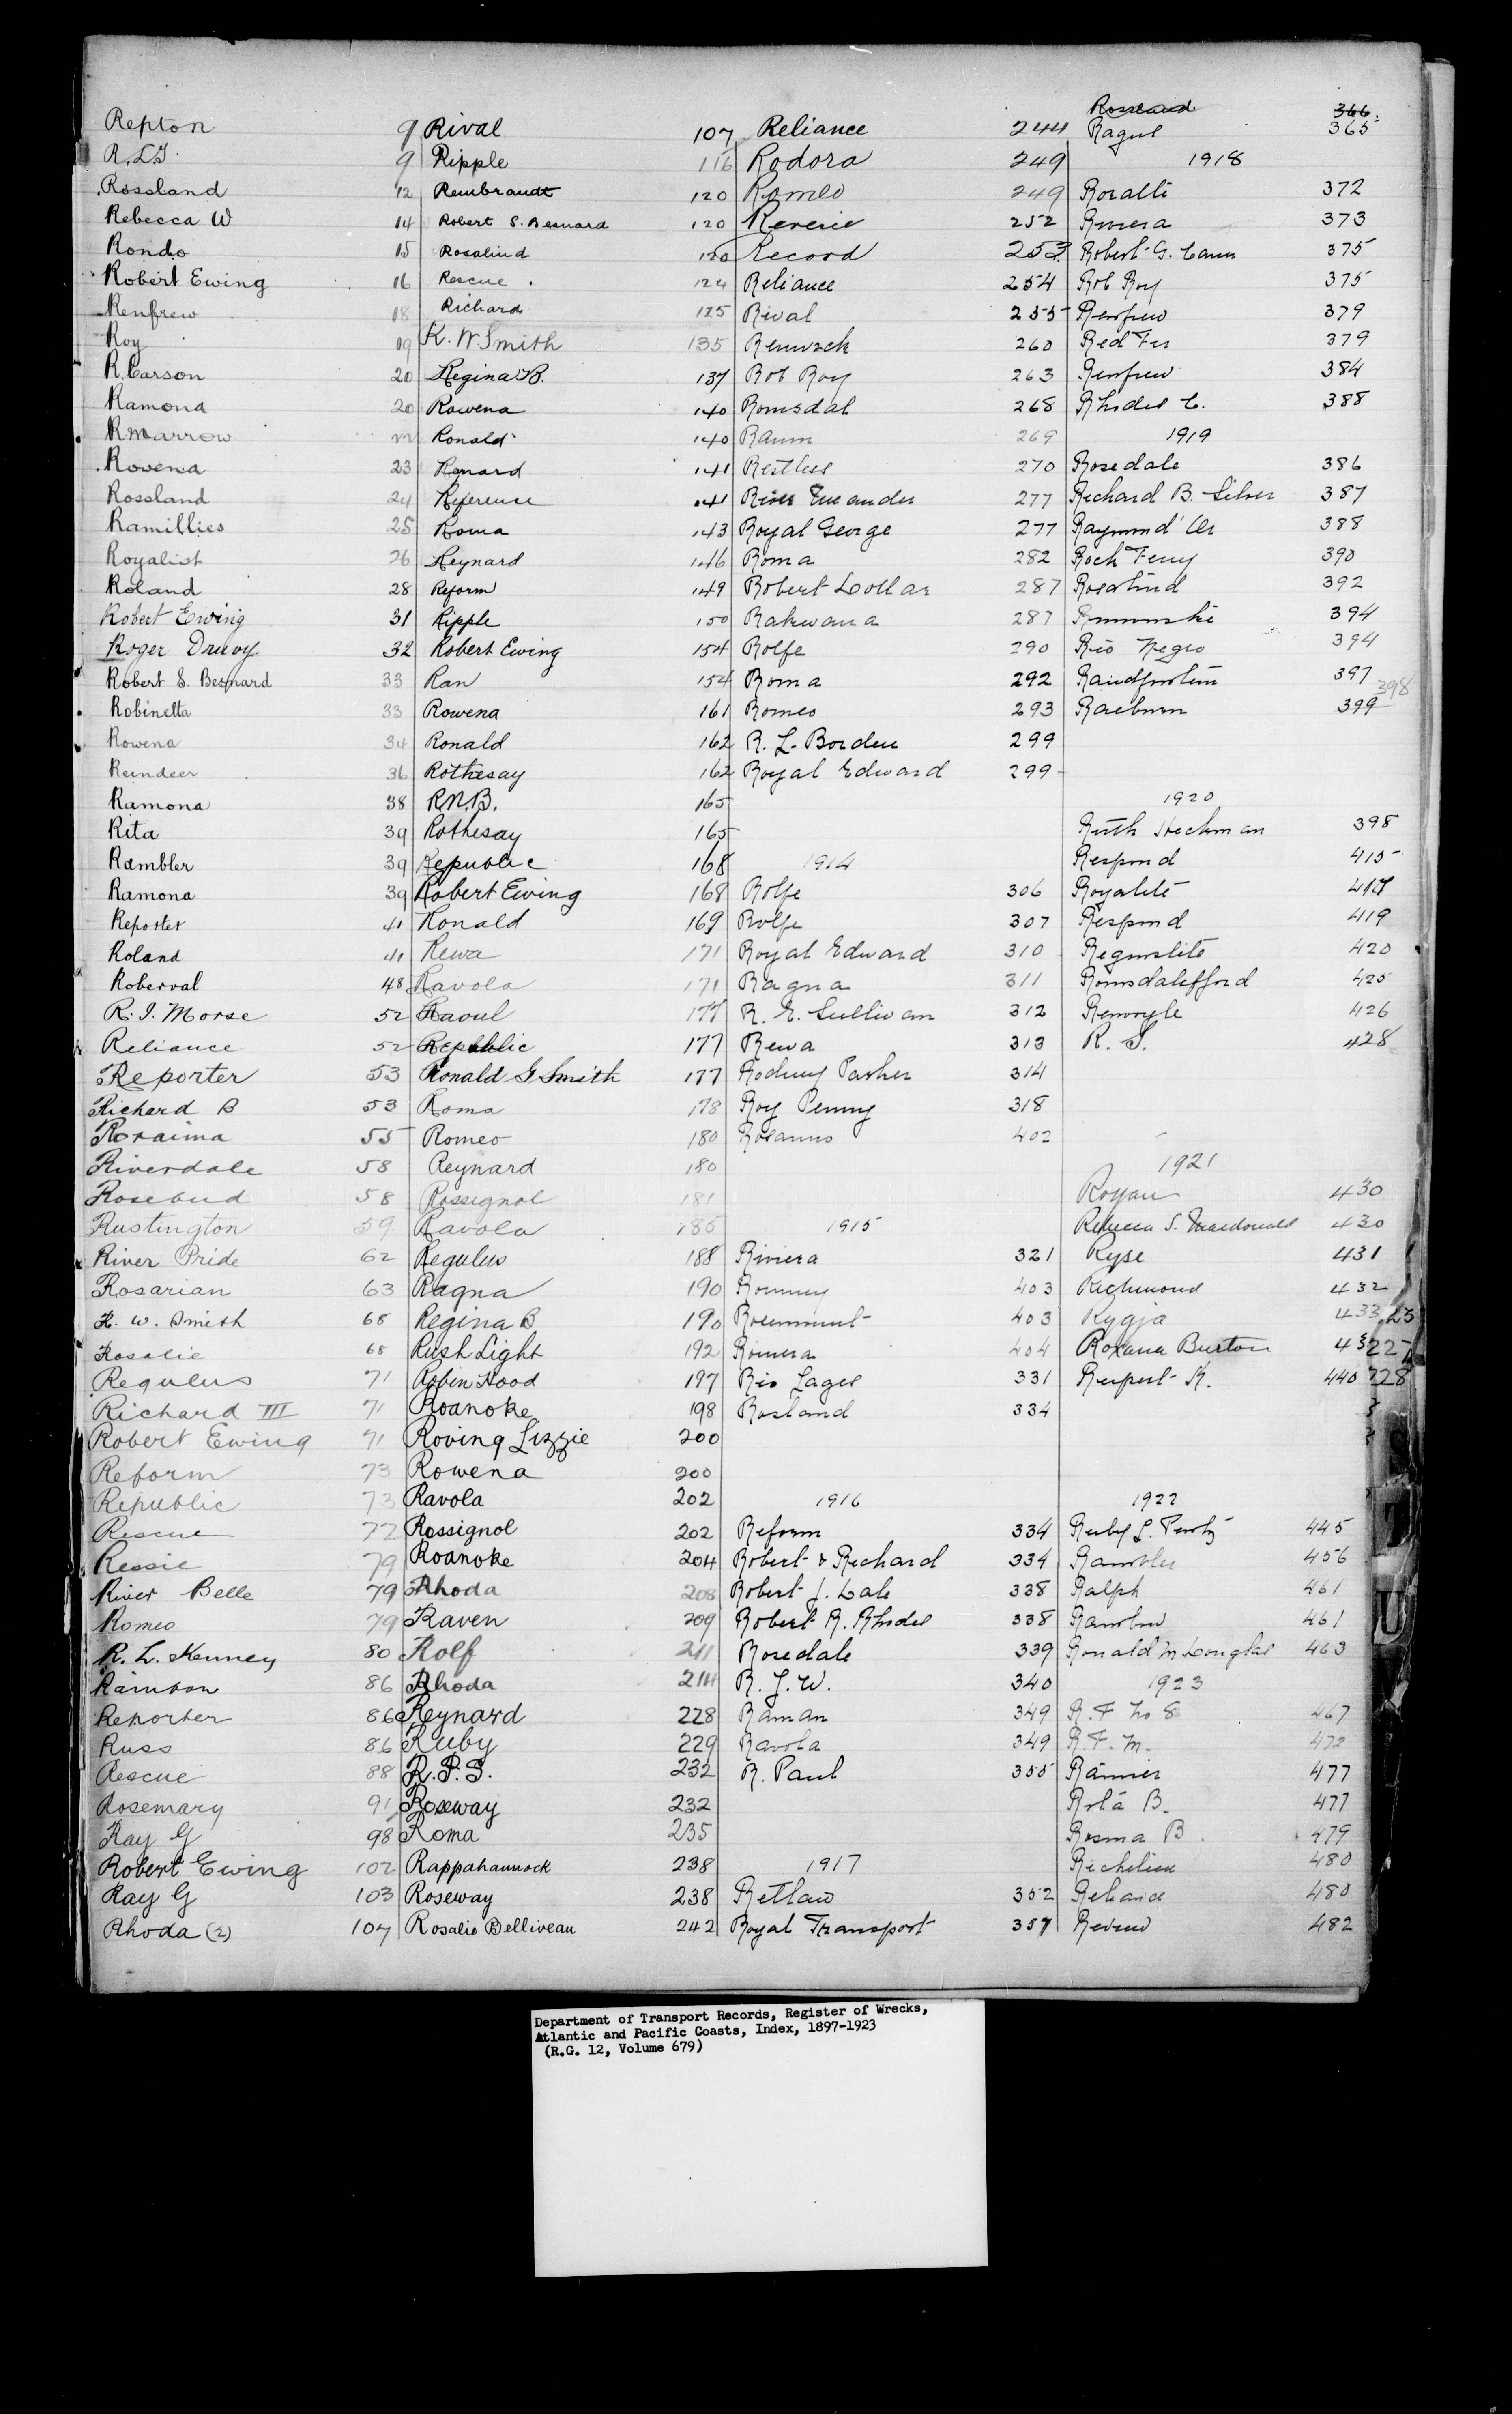 Repton 9
R.L.G. 9
Rossland 12
Rebecca W 14
Rondo 15
Robert Ewing 16
Renfrew 18
Roy 19
R. Carson 20
Ramona 20
R Marrow
Rowena 23
Rossland 24
Ramillies 25
Royalist 26
Roland 28
Robert Ewing 31
Roger Drury 32
Robert S. Besnard 33
Robinetta 33
Rowena 34
Reindeer 36
Ramona 38
Rita 39
Rambler 39
Ramona 39
Reporter 41
Roland 41
Roberval 48
R. I. Morse 52
Reliance 52
Reporter 53
Richard B 53
Roraima 55
Riverdale 58
Rosebud 58
Rustington 59
River Pride 62
Rosarian 63
R. W. Smith 68
Rosalie 68
Regulus 71
Richard III 71
Robert Ewing 71
Reform 73
Republic 73
Rescue 77
Ressie 79
River Belle 79
Romeo 79
R. L. Kenney 80
Rainbow 86
Reporter 86
Russ 86
Rescue 88
Rosemary 91
Ray G 98
Robert Ewing 102
Ray G 103
Rhoda (2) 107
Rival 107
Ripple 116
Rembrandt 120
Robert S. Besnard 120
Rosalind 120
Rescue . 124
Richard 125
R. W. Smith 135
Regina B. 137
Rowena 140
Ronald 140
Renard 141
Reference 141
Roma 143
Reynard 146
Reform 149
Ripple 150
Robert Ewing 154
Ran 154
Rowena 161
Ronald 162
Rothesay 162
R.N.B. 165
Rothesay 165
Republic 168
Robert Ewing 168
Ronald 169
Rewa 171
Ravola 171
Raoul 177
Republic 177
Ronald G Smith 177
Roma 178
Romeo 180
Reynard 180
Rossignol 181
Ravola 185
Regulus 188
Ragna 190
Regina B 190
Rush Light 192
Robin Hood 197
Roanoke 198
Roving Lizzie 200
Rowena 200
Ravola 202
Rossignol 202
Roanoke 204
Rhoda 208
Raven 209
Rolf 211
Rhoda 214
Reynard 228
Ruby 229
R.P.S. 232
Roseway 232
Roma 235
Rappahannock 238
Roseway 238
Rosalie Belliveau 242
Reliance 244
Rodora 249
Romeo 249
Reverie 252
Record 253
Reliance 254
Rival 255
Renwick 260
Rob Roy 263
Romsdal 268
Raum 269
Restless 270
River Meander 277
Royal George 277
Roma 282
Robert Dollar 287
Rakwana 287
Rolfe 290
Roma 292
Romeo 293
R. L. Borden 299
Royal Edward 299
1914
Rolfe 306
Rolfe 307
Royal Edward 310
Ragna 311
R. E. Sullivan 312
Rewa 313
Rodney Parker 314
Roy Penny 318
Roseanno 402
1915
Riviera 321
Romney 403
Rosemount 403
Romera 404
Rio Lages 331
Rosland 334
1916
Reform 334
Robert & Richard 334
Robert J. Dale 338
Robert R. Rhodes 338
Rosedale 339
R. J. W. 340
Raman 349
Ravola 349
R. Paul 355
1917
Retlaw 352
Royal Transport 357
Rossland 366.
Ragus 365
1918
372
Riviera 373
Robert G. Cann 375
Rob Roy 375
Renfrew 379
Red Fir 379
Renfrew 384
Rhodes C. 388
1919
Rosedale 386
Richard B. Silver 387
388
Rock Ferry 390
Rosalind 392
394
Rio Negro 394
397
398
Raeburn 399
1920
Ruth Hickman 398
Respond 415
Royalite 417
Respond 419
Reginolite 420
Romsdalsfjord 425
Renvoyle 426
R. S. 428
1921
Royan 430
Rebecca S. Macdonald 430
Ryse 431
Richmond 432
Rygja 433
Roxana Burton 43
Rupert K. 440
1922
Ruby L. Pentz 445
Rambler 456
Ralph 461
Rainbow 461
Ronald M Douglas 463
1923
R. F. No 8 467
R. F. M. 472
Ranier 477
Rola B. 477
Rosma B. 479
Richelieu 480
Reliance 480
Review 482
Department of Transport Records, Register of Wrecks,
Atlantic and Pacific Coasts, Index, 1897-1923
(R.G. 12, Volume 679)